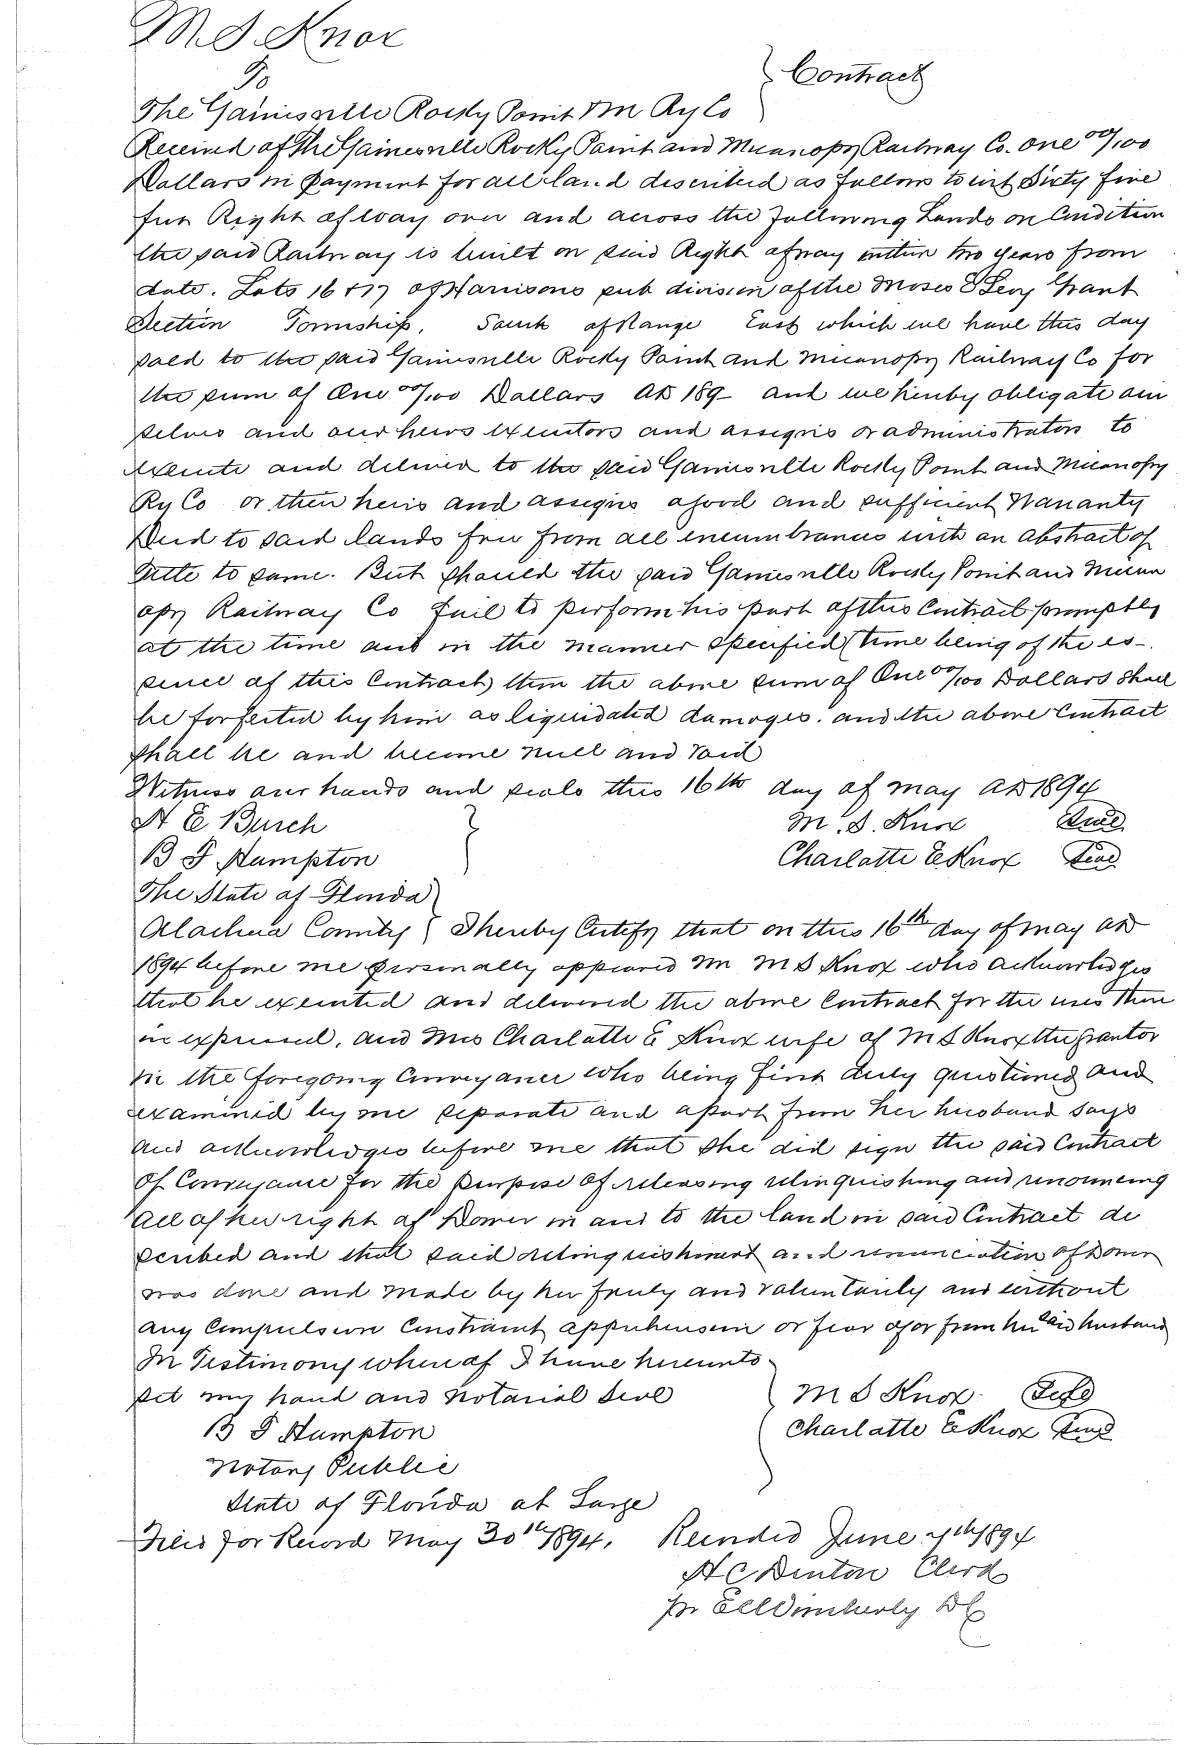 M. S. Knox
To
Contract
The Gainesville Rocky Point & M Ry Co
Received of The Gainesville Rocky Point and Micanopy Railway Co. one 00/100
Dollars in payment for all land described as follows to wit Sixty five
feet Right of way over and across the following Lands on Condition
the said Railway is built on said Right of way within two years from
date. Lots 16 & 17 of Harrisons sub division of the Moses E Levy Grant
Section Township, South of Range East which we have this day
sold to the said Gainesville Rocky Point and Micanopy Railway Co for
the sum of One 00/100 Dollars AD 189_ and we hereby obligate our
selves and our heirs executors and assigns or administrators to
execute and deliver to the said Gainesville Rocky Point and Micanopy
Ry Co or their heirs and assigns a good and sufficient Warranty
Deed to said lands free from all encumbrances with an abstract of
Title to same. But should the said Gainesville Rocky Point and Mican
opy Railway Co fail to perform his part of this Contract promptly
at the time and in the manner specified (time being of the es-
sence of this Contract) then the above sum of One 00/100 Dollars shall
be forfeited by him as liquidated damages. and the above Contract
shall be and become null and void
Witness our hands and seals this 16th day of May AD 1894
H E Burch M. S. Knox Seal
B F Hampton Charlotte E Knox Seal
The State of Florida
Alachua County I hereby Certify that on this 16th day of May AD
1894 before me personally appeared Mr M S Knox who acknowledges
that he executed and delivered the above Contract for the uses there
in expressed, and Mrs Charlotte E Knox wife of M S Knox the grantor
in the foregoing Conveyance who being first duly questioned and
examined by me separate and apart from her husband says
and acknowledges before me that she did sign the said Contract
of Conveyance for the purpose of releasing relinquishing and renouncing
all of her right of Dower in and to the land in said Contract de
scribed and that said relinquishment and renunciation of Dower
was done and made by her freely and voluntarily and without
any Compulsion Constraint apprehension or fear of or from her said husband
In Testimony whereof I have hereunto
set my hand and Notarial Seal M S Knox Seal
B F Hampton Charlotte E Knox Seal
Notary Public
State of Florida at Large
Filed for Record May 30th 1894. Recorded June 7th 1894
H C Denton Clerk
Pr E C Wimberly DC